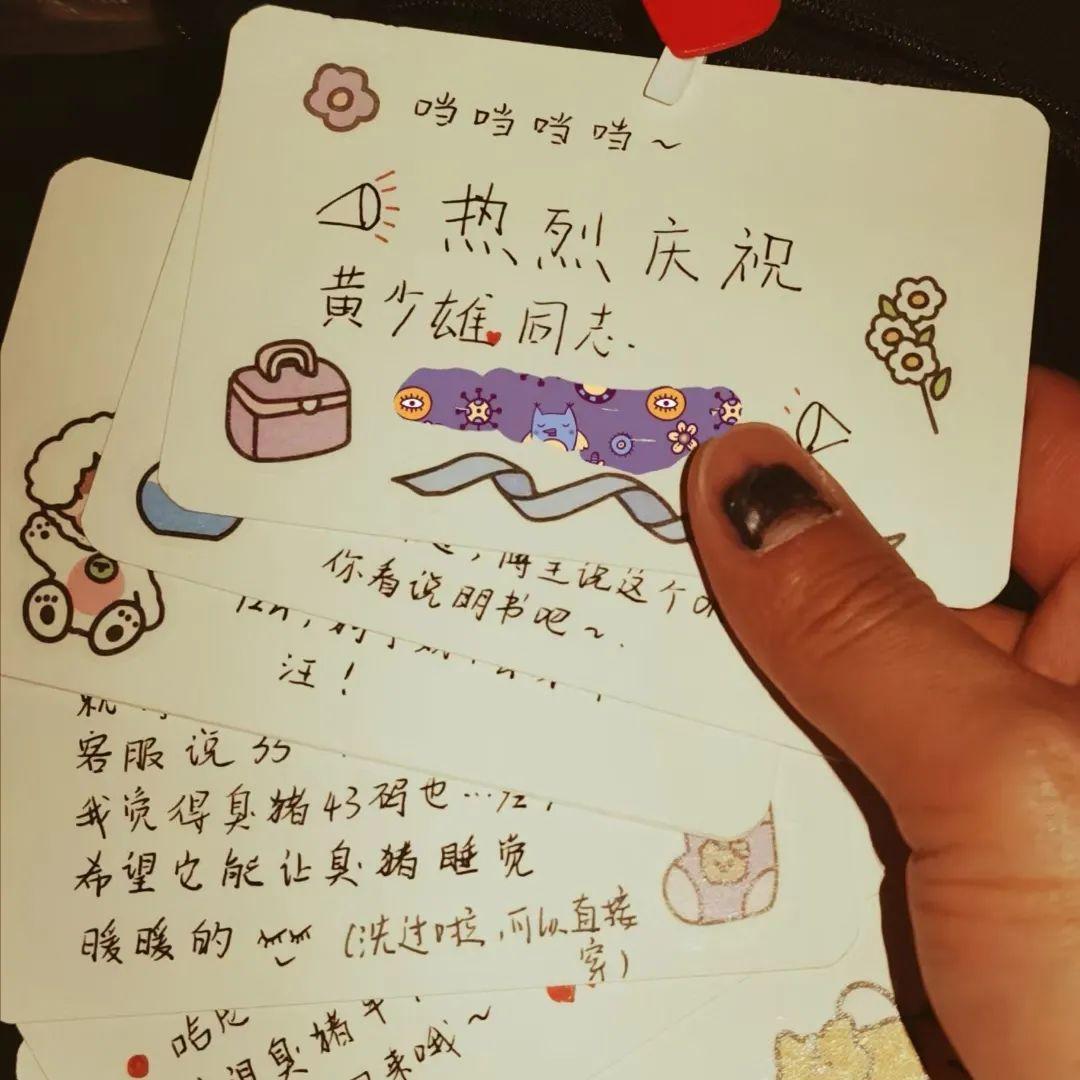 当当当当~
热烈庆祝
黄少雄同志.
博主说这个
你看说明书吧~.
汪！
客服说
我觉得臭猪43码也…
希望它能让臭猪睡觉
暖暖的 (洗过啦，可以直接
穿)
臭猪
来哦~